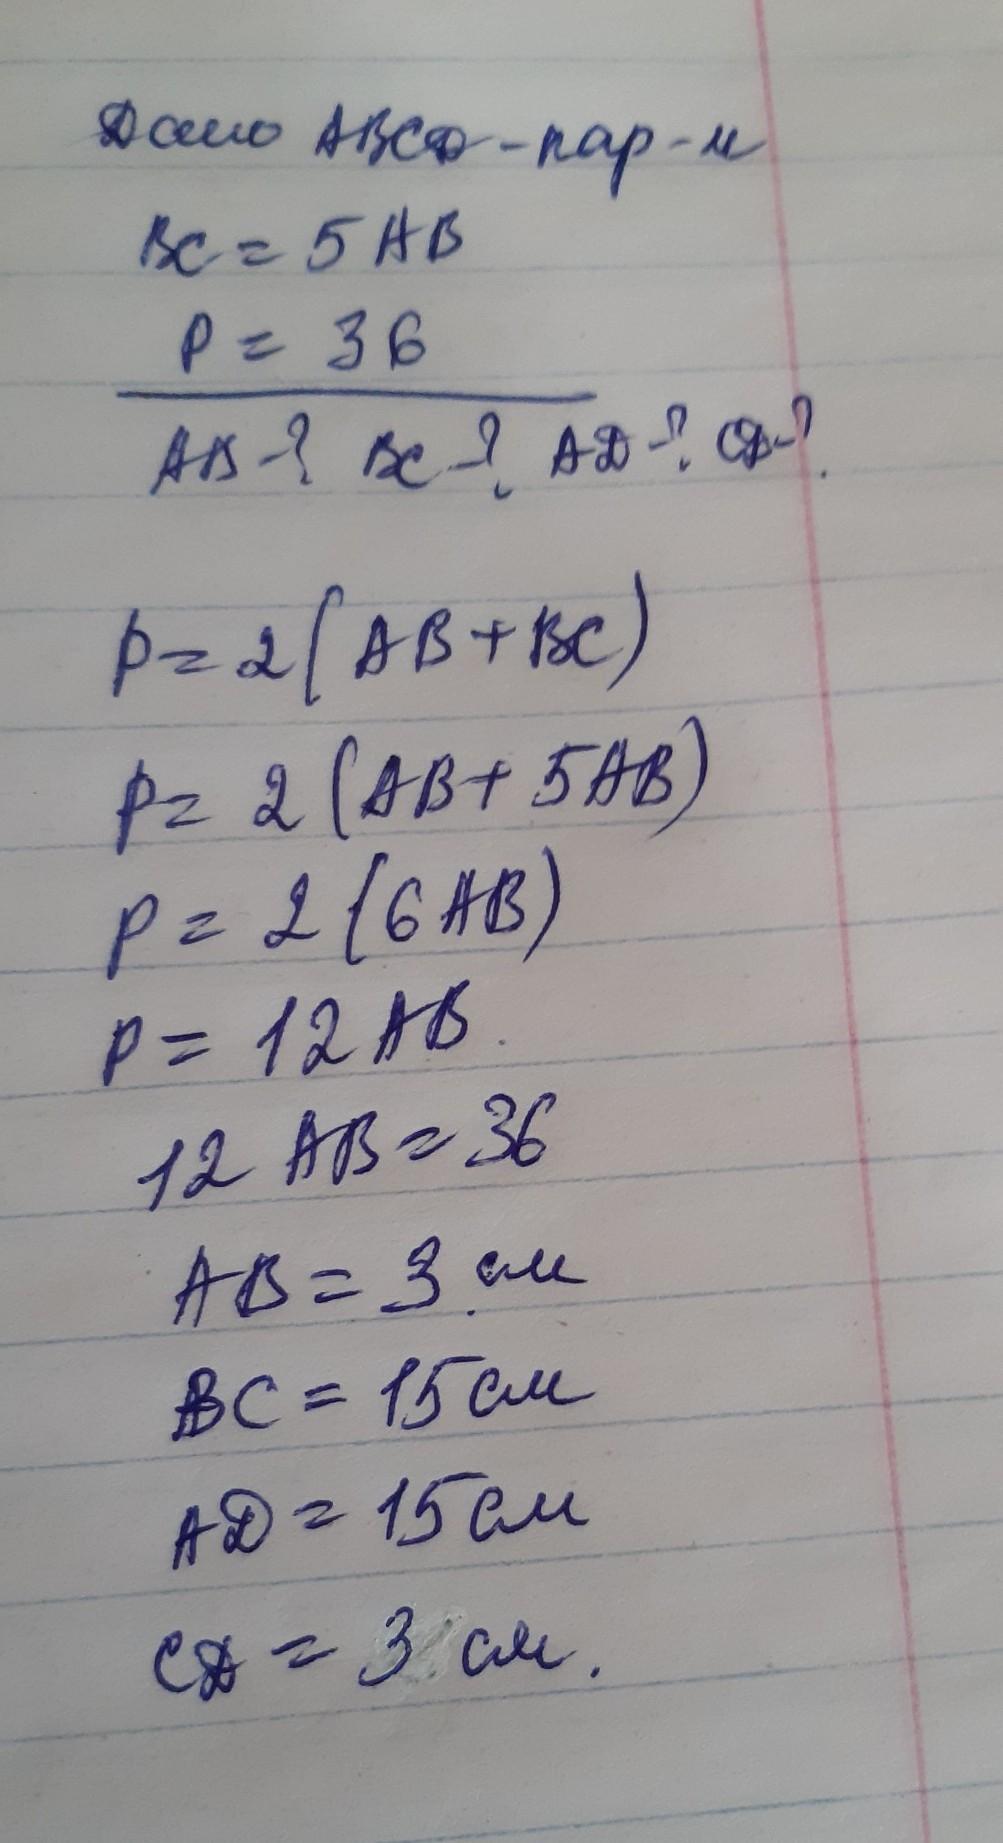 Дано ABCD-пар-м
BC = 5AB
P = 36
AB-? BC-? AD-? CD-?
P=2(AB+BC)
P=2(AB+5AB)
P=2(6AB)
P=12AB.
12AB=36
AB=3 см
BC=15см
AD=15см
CD=3 см.